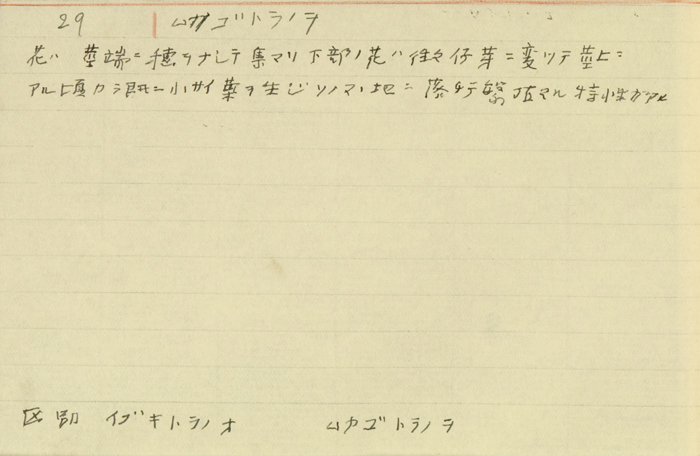 29 ムカゴトラノヲ
花ハ 茎端ニ穂ヲナシテ集マリ下部ノ花ハ往々仔芽ニ変ツテ茎上ニ
アル頃カラ既ニ小サイ葉ヲ生ジソノマヽ地ニ落チテ繁殖スル特性ガアル
区別 イブキトラノオ ムカゴトラノヲ